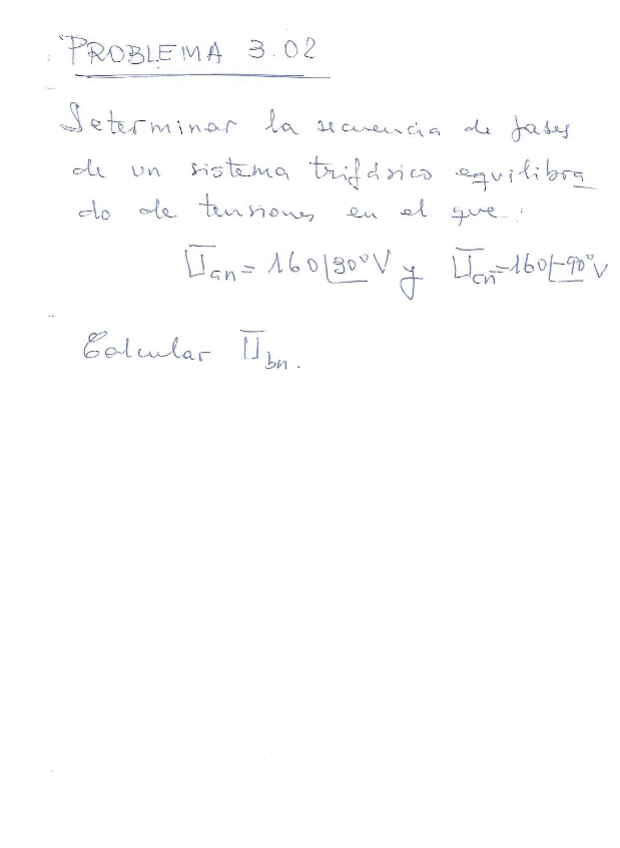 PROBLEMA 3.02
Determinar la secuencia de fases
de un sistema trifásico equilibra
do de tensiones en el que:
U̅an = 160∠30° V y U̅cn = 160∠-90° V
Calcular U̅bn.